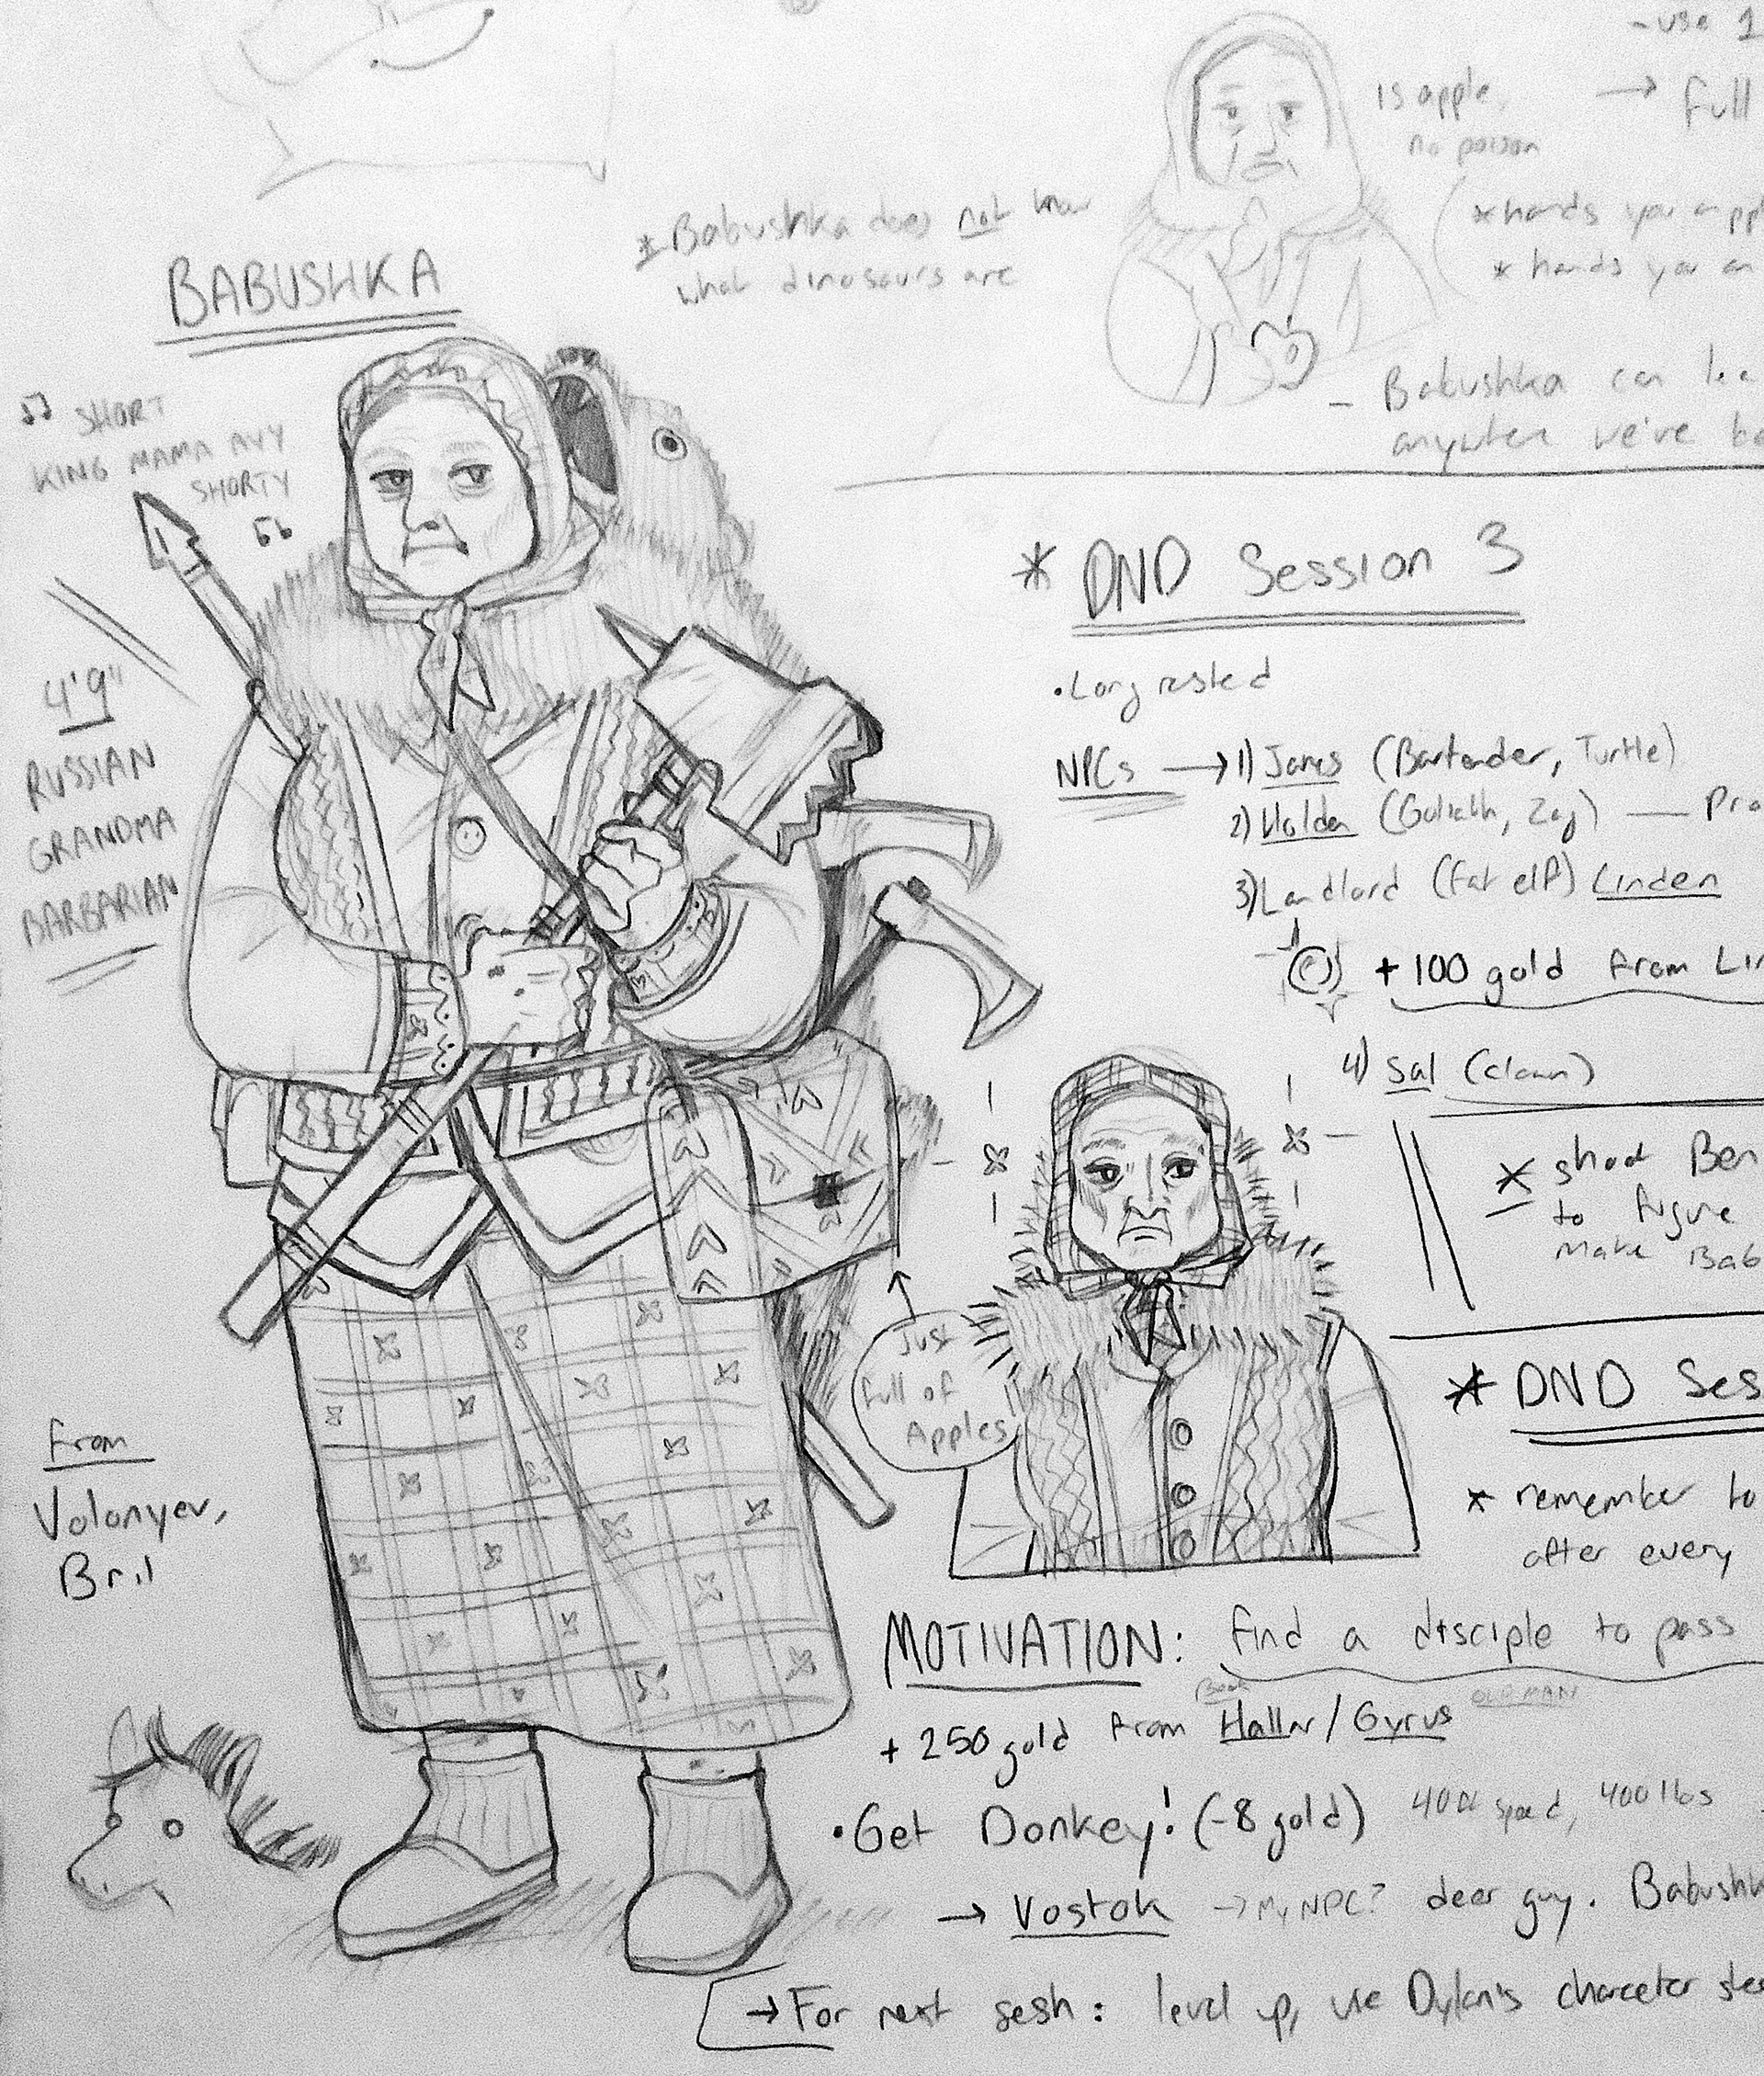 - use 1
is apple,
no poison
→ full
* hands you an appl
* hands you an
* Babushka does not know
what dinosaurs are
- Babushka can
anywhere we've be
BABUSHKA
♫ SHORT
KING MAMA AVY
SHORTY
♫
4'9"
RUSSIAN
GRANDMA
BARBARIAN
From
Volonyev,
Bril
* DND Session 3
• Long rested
NPCs → 1) James (Bartender, Turtle)
2) Holden (Goliath, Zag) — Pro
3) Landlord (Fat elf) Linden
+ 100 gold from Lin
4) Sal (clown)
* shoot Ben
to figure
make Bab
Just
full of
Apples
* DND Ses
* remember to
after every
MOTIVATION: find a disciple to pass
OLD MAN
+ 250 gold from Hallar/Gyrus
• Get Donkey! (-8 gold) 40ft speed, 400 lbs
→ Vostok → My NPC? deer guy. Babushk
→ For next sesh: level up, use Dylan's character